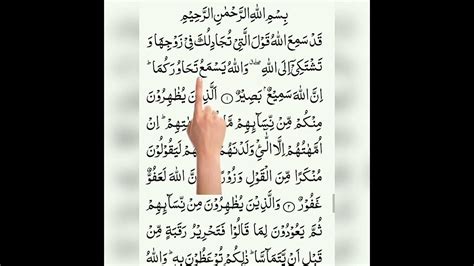 بِسْمِ اللهِ الرَّحْمٰنِ الرَّحِيْمِ
قَدْ سَمِعَ اللهُ قَوْلَ الَّتِيْ تُجَادِلُكَ فِيْ زَوْجِهَا وَ
تَشْتَكِيْٓ اِلَى اللهِ ۖ وَاللهُ يَسْمَعُ تَحَاوُرَكُمَا ؕ
اِنَّ اللهَ سَمِيْعٌۢ بَصِيْرٌ ۝۱ اَلَّذِيْنَ يُظٰهِرُوْنَ
مِنْكُمْ مِّنْ نِّسَآىِٕهِمْ مَّا ... اُمَّهٰتِهِمْ ؕ اِنْ
اُمَّهٰتُهُمْ اِلَّا الّٰٓـِٔيْ وَلَدْنَهُمْ ؕ ... لَيَقُوْلُوْنَ
مُنْكَرًا مِّنَ الْقَوْلِ وَزُوْرًا ؕ ... اللهَ لَعَفُوٌّ
غَفُوْرٌ ۝۲ وَالَّذِيْنَ يُظٰهِرُوْنَ مِنْ نِّسَآىِٕهِمْ
ثُمَّ يَعُوْدُوْنَ لِمَا قَالُوْا فَتَحْرِيْرُ رَقَبَةٍ مِّنْ
قَبْلِ اَنْ يَّتَمَآسَّا ؕ ذٰلِكُمْ تُوْعَظُوْنَ بِهٖ ؕ وَاللهُ